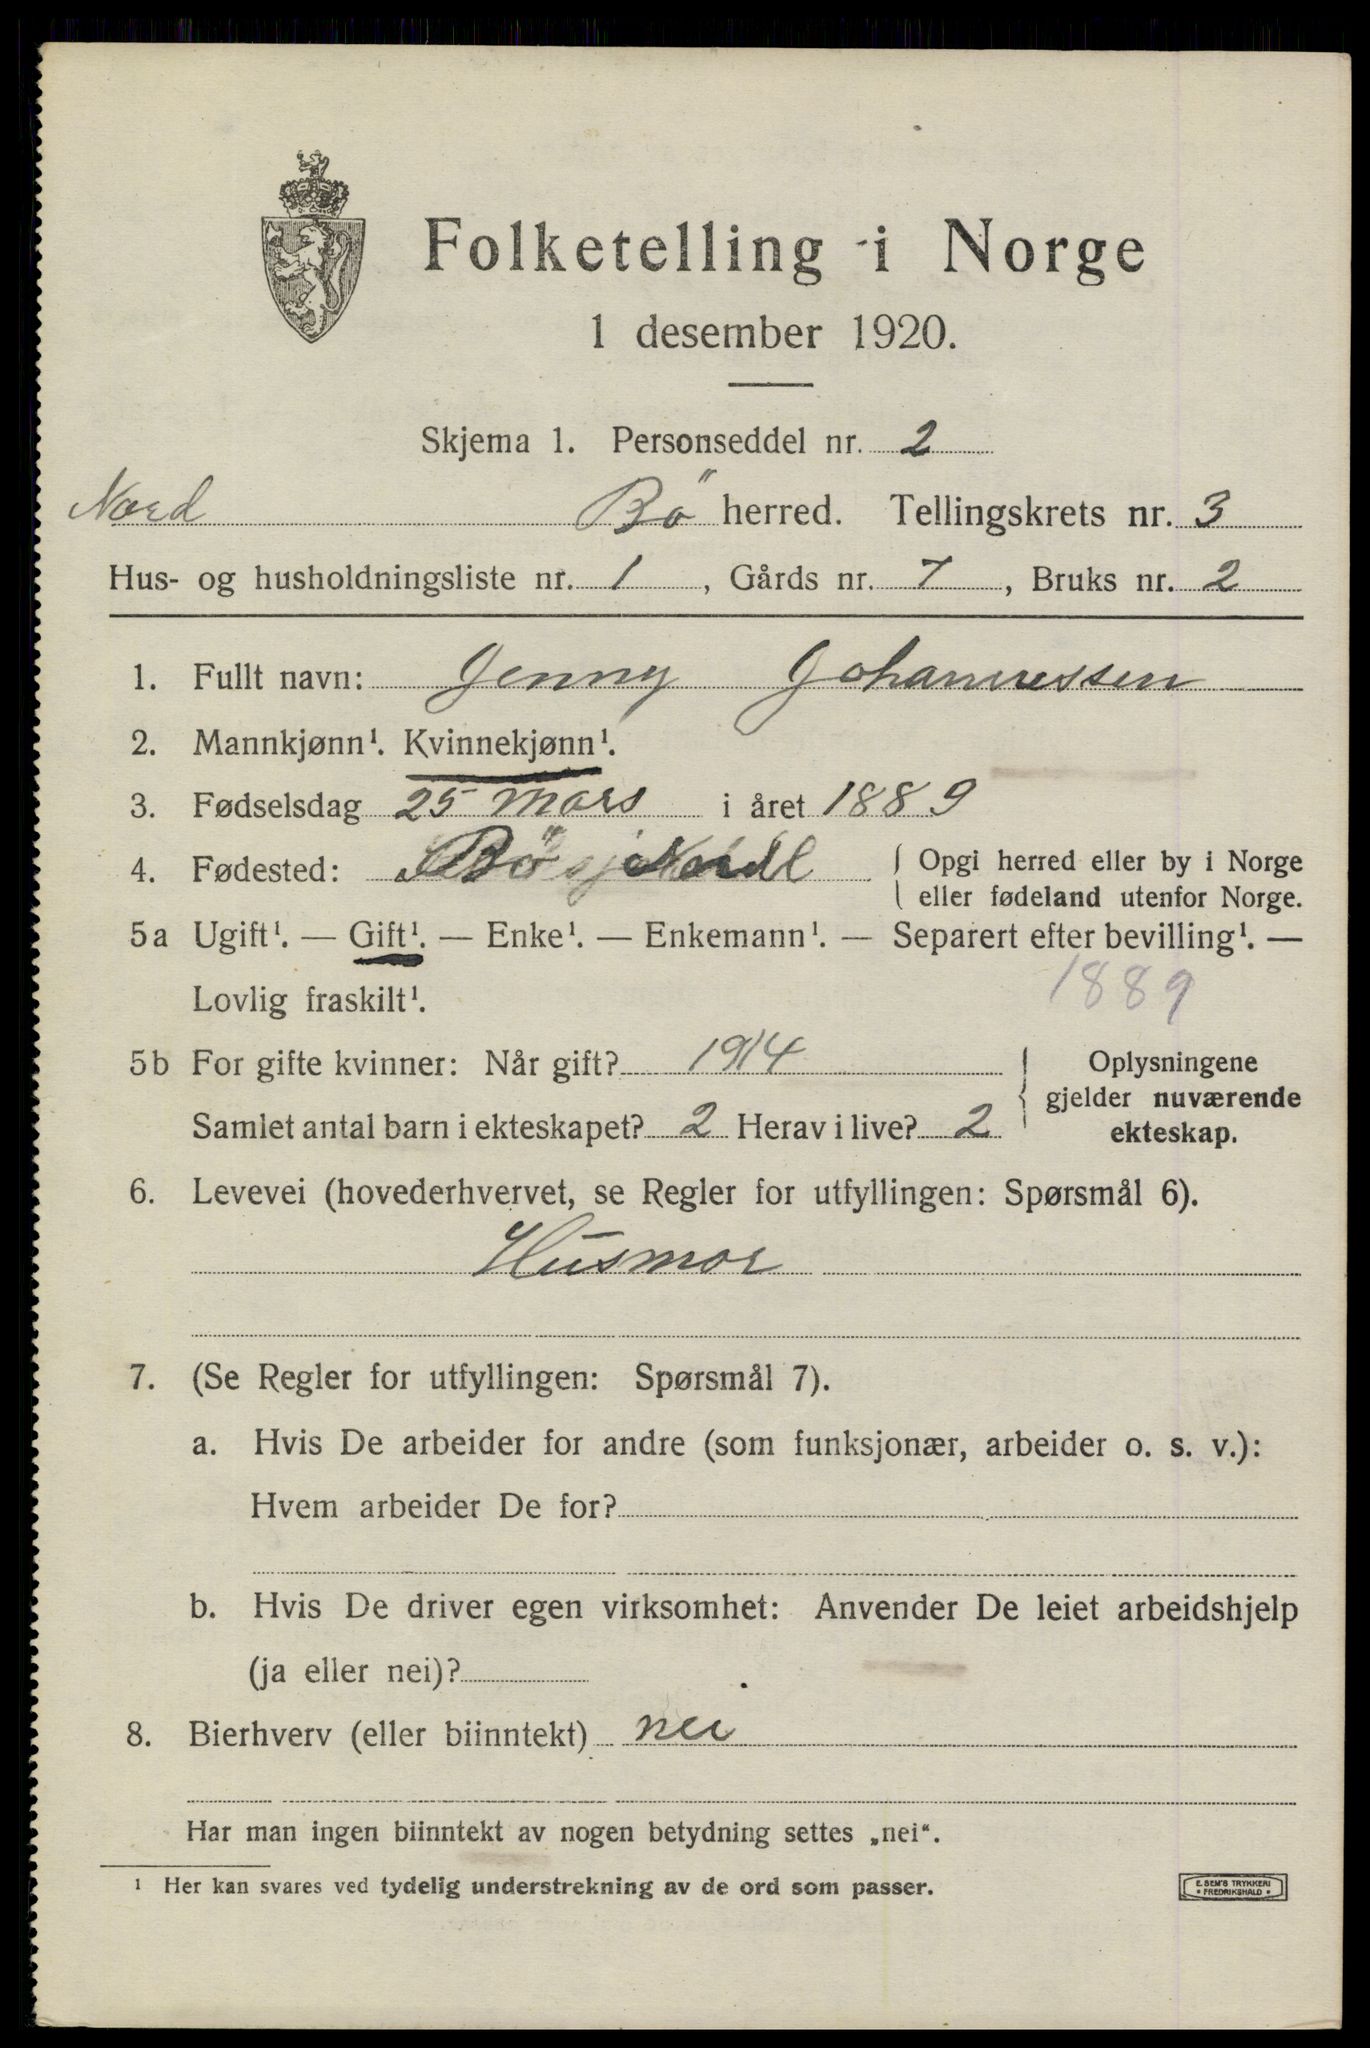 Folketelling i Norge
1 desember 1920.
Skjema 1. Personseddel nr. 2
Nord Bö herred. Tellingskrets nr. 3
Hus- og husholdningsliste nr. 1, Gårds nr. 7, Bruks nr. 2
1. Fullt navn: Jenny Johannessen
2. Mannkjønn¹. Kvinnekjønn¹.
3. Fødselsdag 25 mars i året 1889
4. Fødested: Bö Nord { Opgi herred eller by i Norge
{ eller fødeland utenfor Norge.
5a Ugift¹. — Gift¹. — Enke¹. — Enkemann¹. — Separert efter bevilling¹. —
Lovlig fraskilt¹. 1889
5b For gifte kvinner: Når gift? 1914
Samlet antal barn i ekteskapet? 2 Herav i live? 2
{ Oplysningene
gjelder nuværende
ekteskap.
6. Levevei (hovederhvervet, se Regler for utfyllingen: Spørsmål 6).
Husmor
7. (Se Regler for utfyllingen: Spørsmål 7).
a. Hvis De arbeider for andre (som funksjonær, arbeider o. s. v.):
Hvem arbeider De for?
b. Hvis De driver egen virksomhet: Anvender De leiet arbeidshjelp
(ja eller nei)?
8. Bierhverv (eller biinntekt) nei
Har man ingen biinntekt av nogen betydning settes „nei“.
¹ Her kan svares ved tydelig understrekning av de ord som passer.
E. SEM'S TRYKKERI
* FREDRIKSHALD *